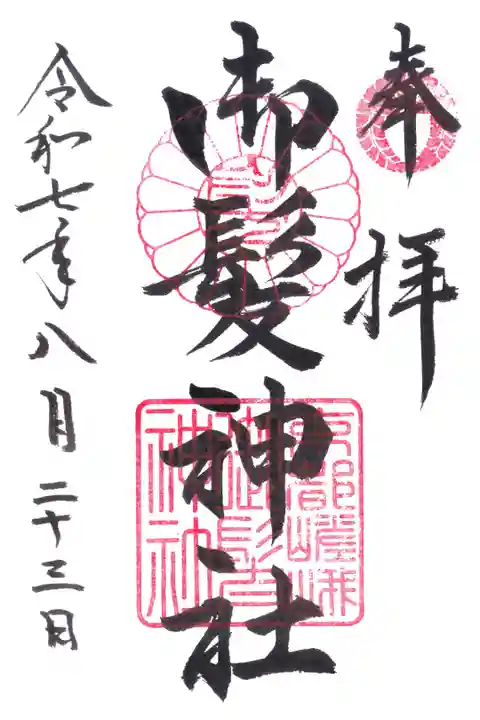 奉拝
御髪神社
令和七年八月二十三日
京都嵯峨
御髪
神社